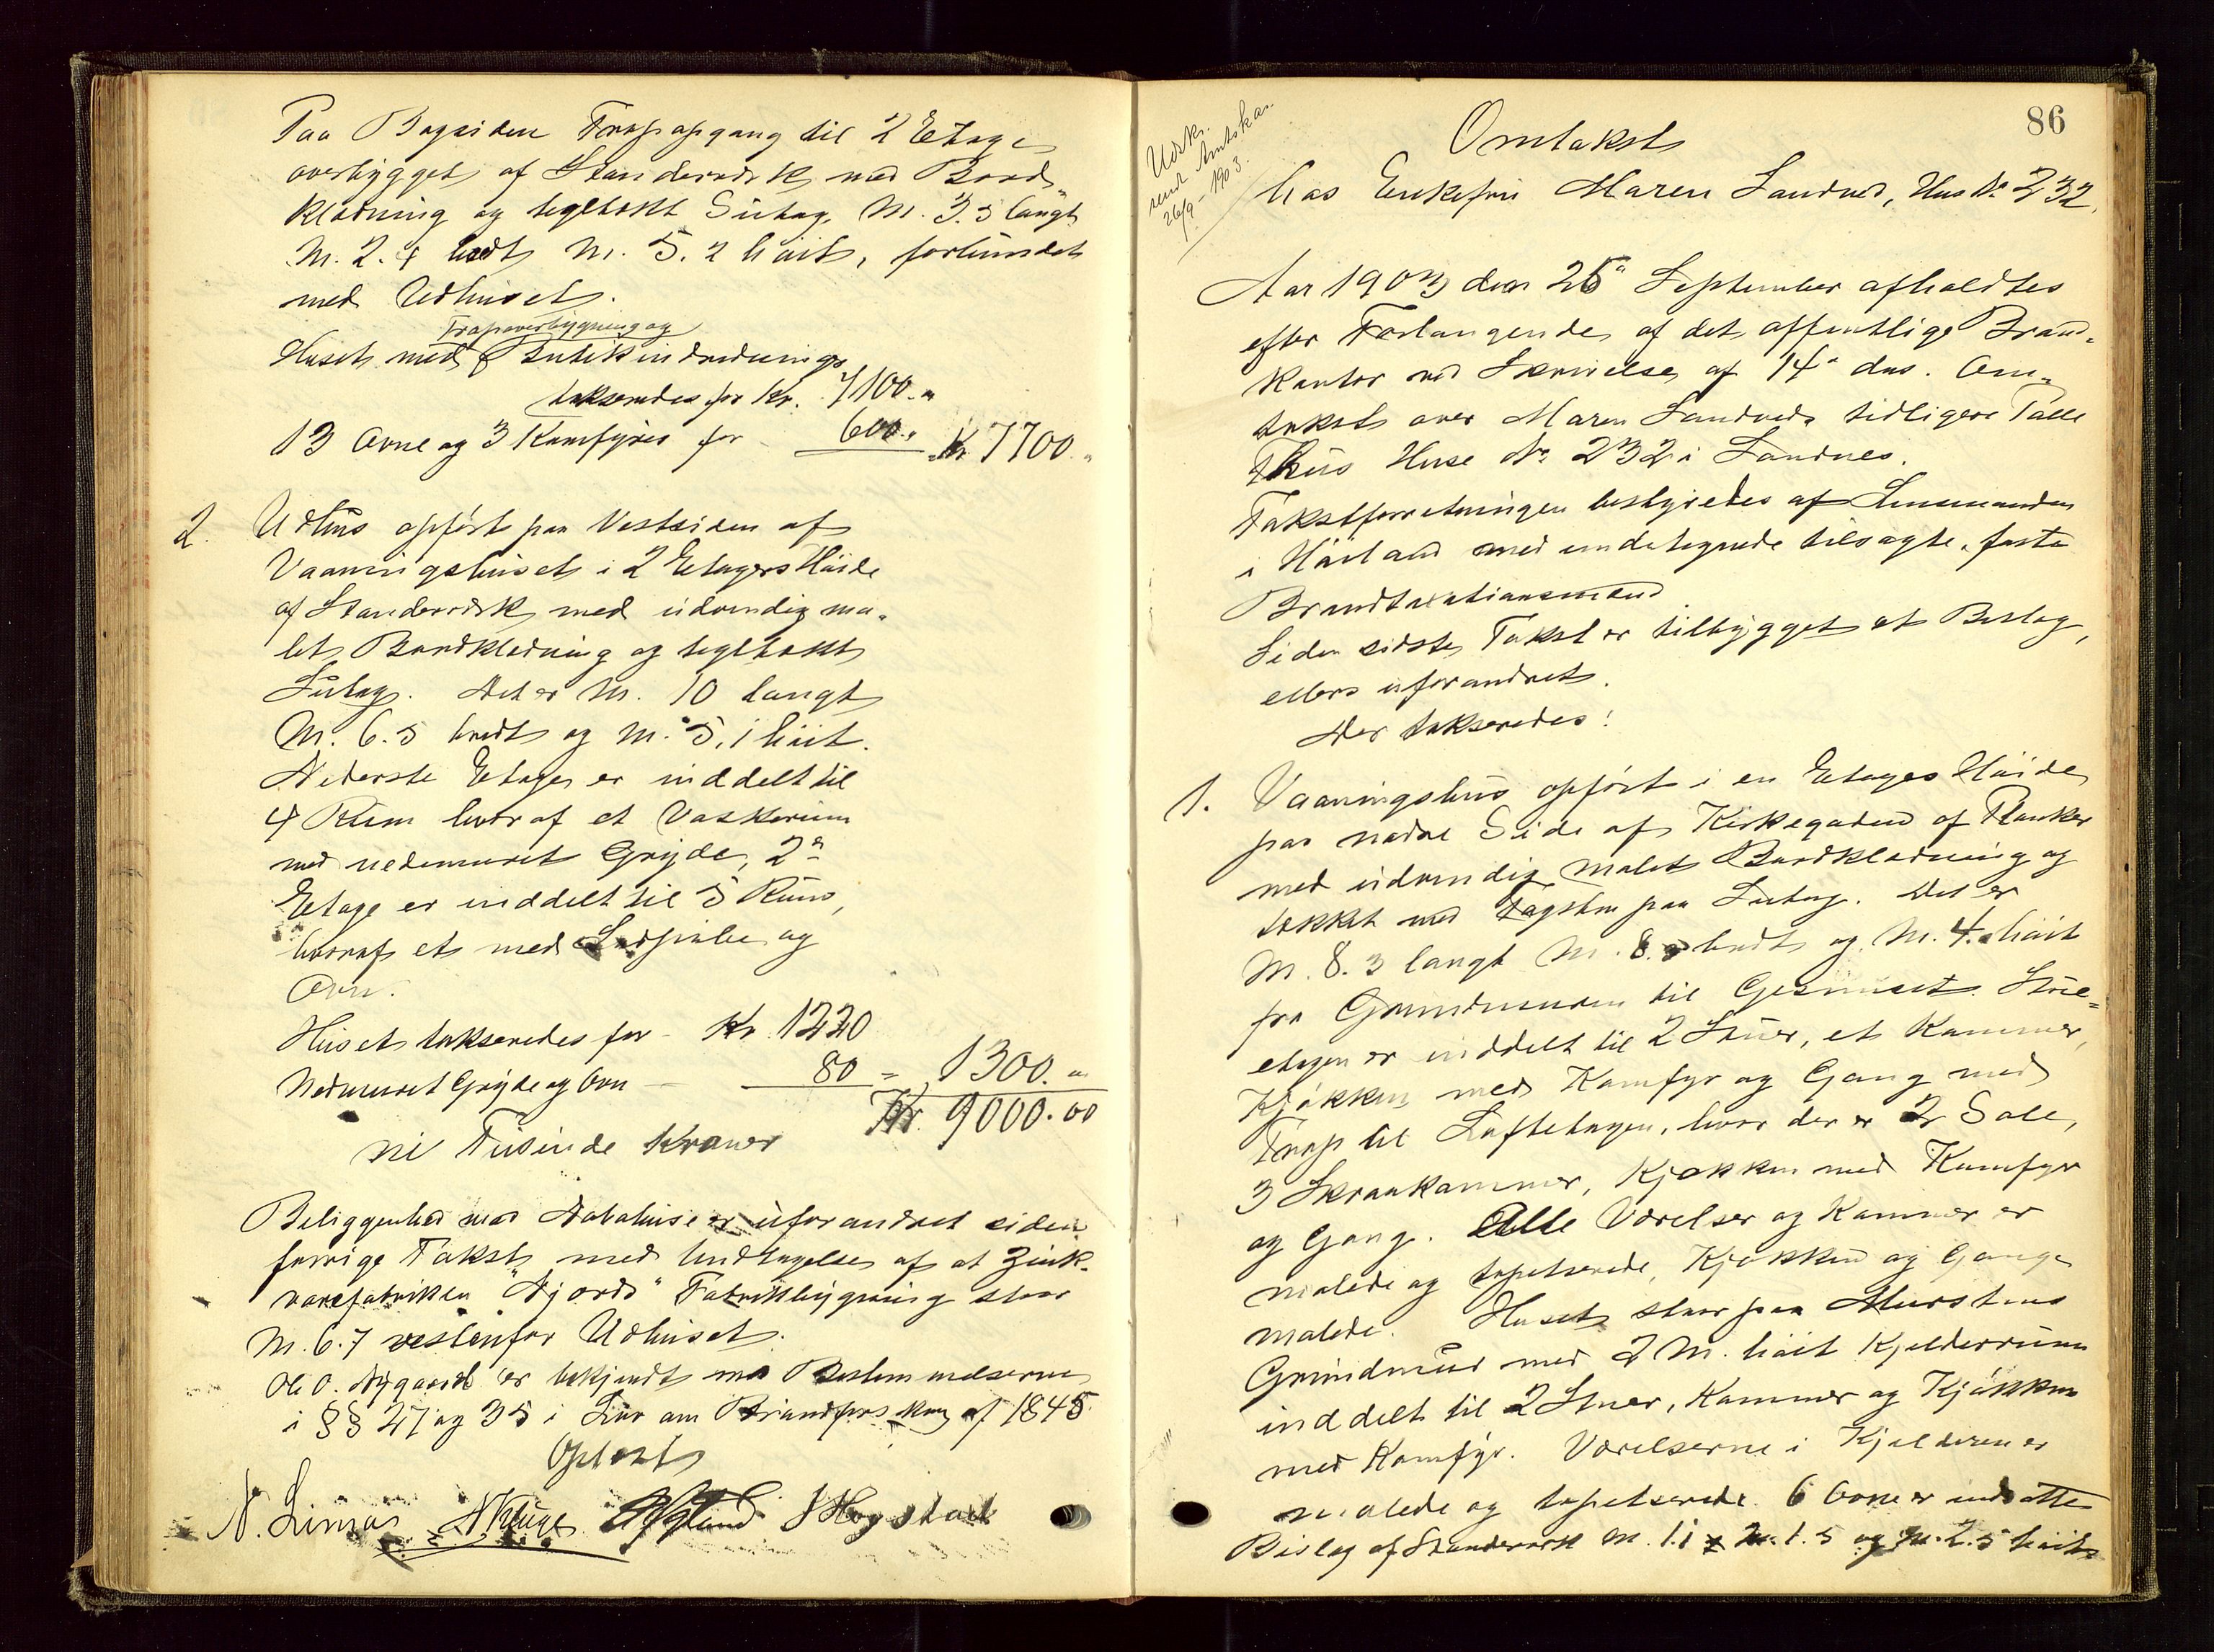 Paa Bagsiden Trapopgang til 2 Etage
overbygget af Standerværk med Bord-
klædning og teglhækt Sutag, M. 3.5 langt
M. 2.4 bredt M. 5.2 høit, forbundet
med Udhuset.
Trapoverbygning og
Huset med Butikindredning
takseredes for Kr. 7100.-
13 Ovne og 3 Komfyrer for - 600.- Kr 7700.-
2. Udhus opført paa Vestsiden af
Vaaningshuset i 2 Etagers Høide
af Standerværk med udvendig ma-
let Bordklædning og teglhækt
Sutag. Det er M. 10 langt
M. 6.5 bredt og M. 5.1 høit.
Nederste Etage er inddelt til
4 Rum hvoraf et Vaskerum
med nedmuret Gryde, 2n
Etage er inddelt til 5 Rum,
hvoraf et med og
Ovn.
Huset takseredes for - Kr. 1220
Nedmuret Gryde og Ovn - 80 = 1300.-
Kr. 9000.00
ni Tusinde Kroner
Beliggenhed med Nabohuse er uforandret siden
forrige Takst med Undtagelse af at Zink-
varefabriken "Njords" Fabrikbygning staar
M. 6.7 vestenfor Udhuset.
Ole O. Nygaard er bekjendt med Bestemmelserne
i §§ 27 og 35 i Lov om Brandforsikring af 1845
Oplæst
N. Limas Høgstad
86
Udsk.
sendt Amtskar.
26/9-1903.
Omtakst
hos Enkefru Maren Sandved, Hus No 232.
Aar 1903 den 25n September afholdtes
efter Forlangende af det offentlige Brand-
kontor ved Skrivelse af 14n ds. Om-
takst over Maren Sandveds tidligere Talle
Huse No 232 i Sandnes.
Takstforretningen bestyredes af Lensmanden
i Høiland med undertegnede tilsagte, faste
Brandtaxationsmænd
Siden sidste Takst er tilbygget et Bislag,
ellers uforandret.
Der takseredes:
1. Vaaningshus opført i en Etages Høide
paa nordre Side af Kirkegaden af Planker
med udvendig malet Bordklædning og
tækket med Tagsten paa Sutag. Det er
M. 8.3 langt M. 8. bredt og M. 4. høit
fra Grundmuren til Gesimset. Stue-
etagen er inddelt til 2 Stuer, et Kammer,
Kjøkken med Komfyr og Gang med
Trap til Loftetagen, hvor der er 2 Sale,
3 Skraakammer, Kjøkken med Komfyr
og Gang. Alle Værelser og Kammer er
malede og tapetserede, Kjøkken og Gange
malede. Huset staar paa Murstens
Grundmur med 2 M. høit Kjelderrum
inddelt til 2 Stuer, Kammer og Kjøkken
med Komfyr. Værelserne i Kjelderen er
malede og tapetserede. 6 Ovne er indsatte
Bislag af Standerværk M. 1.1 x M. 1.5 og M. 2.5 høit